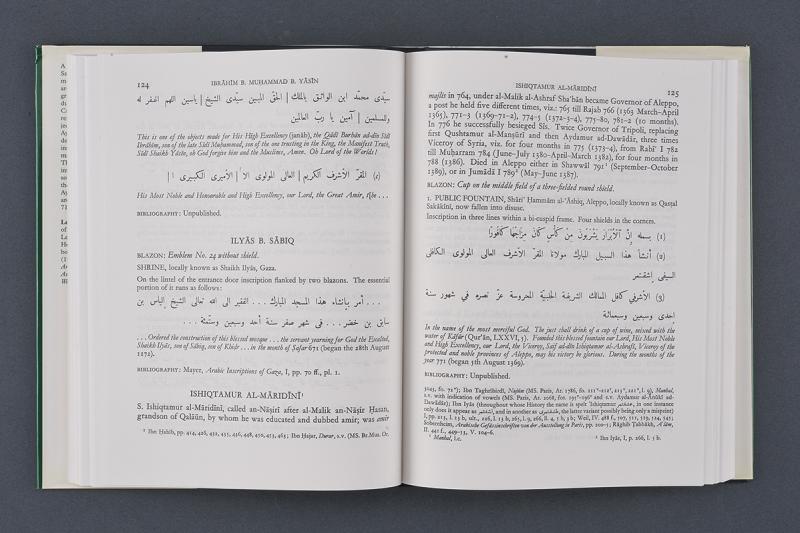 124
IBRĀHĪM B. MUḤAMMAD B. YĀSĪN
سيّدى محمّد ابن الواثق بالملك | الحقّ المبين سيّدى الشيخ | ياسين اللهم اغفر له
وللمسلمين | آمين يا ربّ العالمين
This is one of the objects made for His High Excellency (janāb), the Qāḍī Burhān ad-dīn Sīdī
Ibrāhīm, son of the late Sīdī Muḥammad, son of the one trusting in the King, the Manifest Truth,
Sīdī Shaikh Yāsīn, oh God forgive him and the Muslims, Amen. Oh Lord of the Worlds!
المقرّ الأشرف الكريم | العالى المولوى الا | الأميرى الكبيرى ا |
His Most Noble and Honourable and High Excellency, our Lord, the Great Amir, the . . .
BIBLIOGRAPHY: Unpublished.
ILYĀS B. SĀBIQ
BLAZON: Emblem No. 24 without shield.
SHRINE, locally known as Shaikh Ilyās, Gaza.
On the lintel of the entrance door inscription flanked by two blazons. The essential
portion of it runs as follows:
. . . أمر بإنشاء هذا المسجد المبارك . . . الفقير الى الله تعالى الشيخ إلياس بن
سابق بن خضر . . . فى شهر صفر سنة أحد وسبعين وستّمئة . . .
. . . Ordered the construction of this blessed mosque . . . the servant yearning for God the Exalted,
Shaikh Ilyās, son of Sābiq, son of Khiḍr . . . in the month of Ṣafar 671 (began the 28th August
1272).
BIBLIOGRAPHY: Mayer, Arabic Inscriptions of Gaza, I, pp. 70 ff., pl. 1.
ISHIQTAMUR AL-MĀRIDĪNĪ¹
S. Ishiqtamur al-Māridīnī, called an-Nāṣirī after al-Malik an-Nāṣir Ḥasan,
grandson of Qalāūn, by whom he was educated and dubbed amir; was amīr
¹ Ibn Ḥabīb, pp. 414, 426, 432, 435, 436, 448, 450, 453, 463; Ibn Ḥajar, Durar, s.v. (MS. Br. Mus. Or.
ISHIQTAMUR AL-MĀRIDĪNĪ
125
majlis in 764, under al-Malik al-Ashraf Shaʿbān became Governor of Aleppo,
a post he held five different times, viz.: 765 till Rajab 766 (1363 March–April
1365), 771–3 (1369–71–2), 774–5 (1372–3–4), 775–80, 781–2 (10 months).
In 776 he successfully besieged Sīs. Twice Governor of Tripoli, replacing
first Qushtamur al-Manṣūrī and then Aydamur ad-Dawādār, three times
Viceroy of Syria, viz. for four months in 775 (1373–4), from Rabīʿ I 782
till Muḥarram 784 (June–July 1380–April–March 1382), for four months in
788 (1386). Died in Aleppo either in Shawwāl 791 (September–October
1389), or in Jumādā I 789 (May–June 1387).
BLAZON: Cup on the middle field of a three-fielded round shield.
1. PUBLIC FOUNTAIN, Shāriʿ Ḥammām al-ʿĀthiq, Aleppo, locally known as Qasṭal
Sakākīnī, now fallen into disuse.
Inscription in three lines within a bi-cuspid frame. Four shields in the corners.
(1) بسمله إِنَّ ٱلْأَبْرَارَ يَشْرَبُونَ مِنْ كَأْسٍ كَانَ مِزَاجُهَا كَافُورًا
(2) أنشأ هذا السبيل المبارك مولانا المقرّ الأشرف العالى المولوى الكافلى
السيفى إشقتمر
(3) الأشرفي كافل الممالك الشريفة الحلبيّة المحروسة عزّ نصره فى شهور سنة
احدى وسبعين وسبعمائة
In the name of the most merciful God. The just shall drink of a cup of wine, mixed with the
water of Kāfūr (Qurʾān, LXXVI, 5). Founded this blessed fountain our Lord, His Most Noble
and High Excellency, our Lord, the Viceroy, Saif ad-dīn Ishiqtamur al-Ashrafī, Viceroy of the
protected and noble provinces of Aleppo, may his victory be glorious. During the months of the
year 771 (began 5th August 1369).
BIBLIOGRAPHY: Unpublished.
s.v. with indication of vowels (MS. Paris, Ar.
only does it appear as
Sobernheim, Arabische Gefässinschriften von der Ausstellung in Paris, pp. 200–5; Rāghib Ṭabbākh, Aʿlām,
II. 441 f., 449–53, V. 104–6.
¹ Manhal, l.c.
² Ibn Iyās, I, p. 266, l. 5 b.